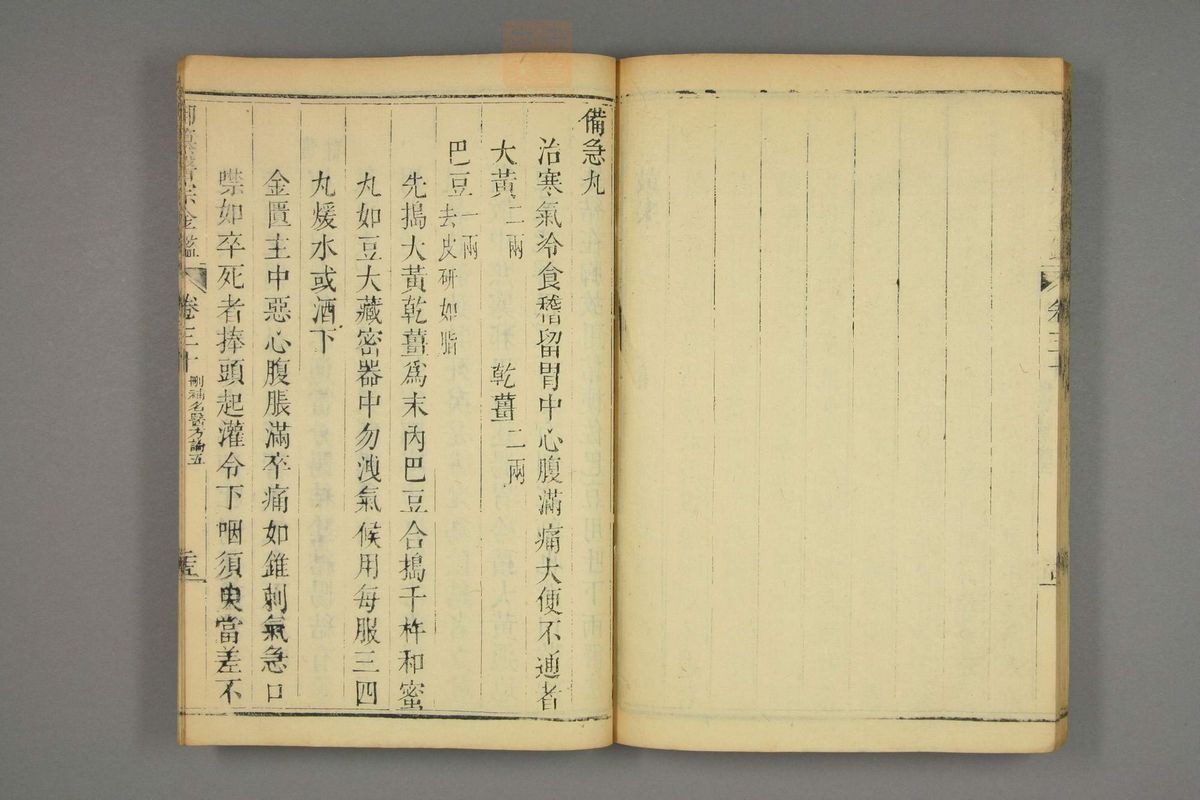 備急丸
治寒氣冷食稽留胃中心腹滿痛大便不通者
大黃二兩　乾薑二兩
巴豆一兩去皮研如脂
先搗大黃乾薑爲末內巴豆合搗千杵和蜜
丸如豆大藏密器中勿洩氣候用每服三四
丸煖水或酒下
金匱主中惡心腹脹滿卒痛如錐刺氣急口
噤如卒死者捧頭起灌令下咽須臾當差不
宗金鑑　卷三十　刪補名醫方論五
卷三十